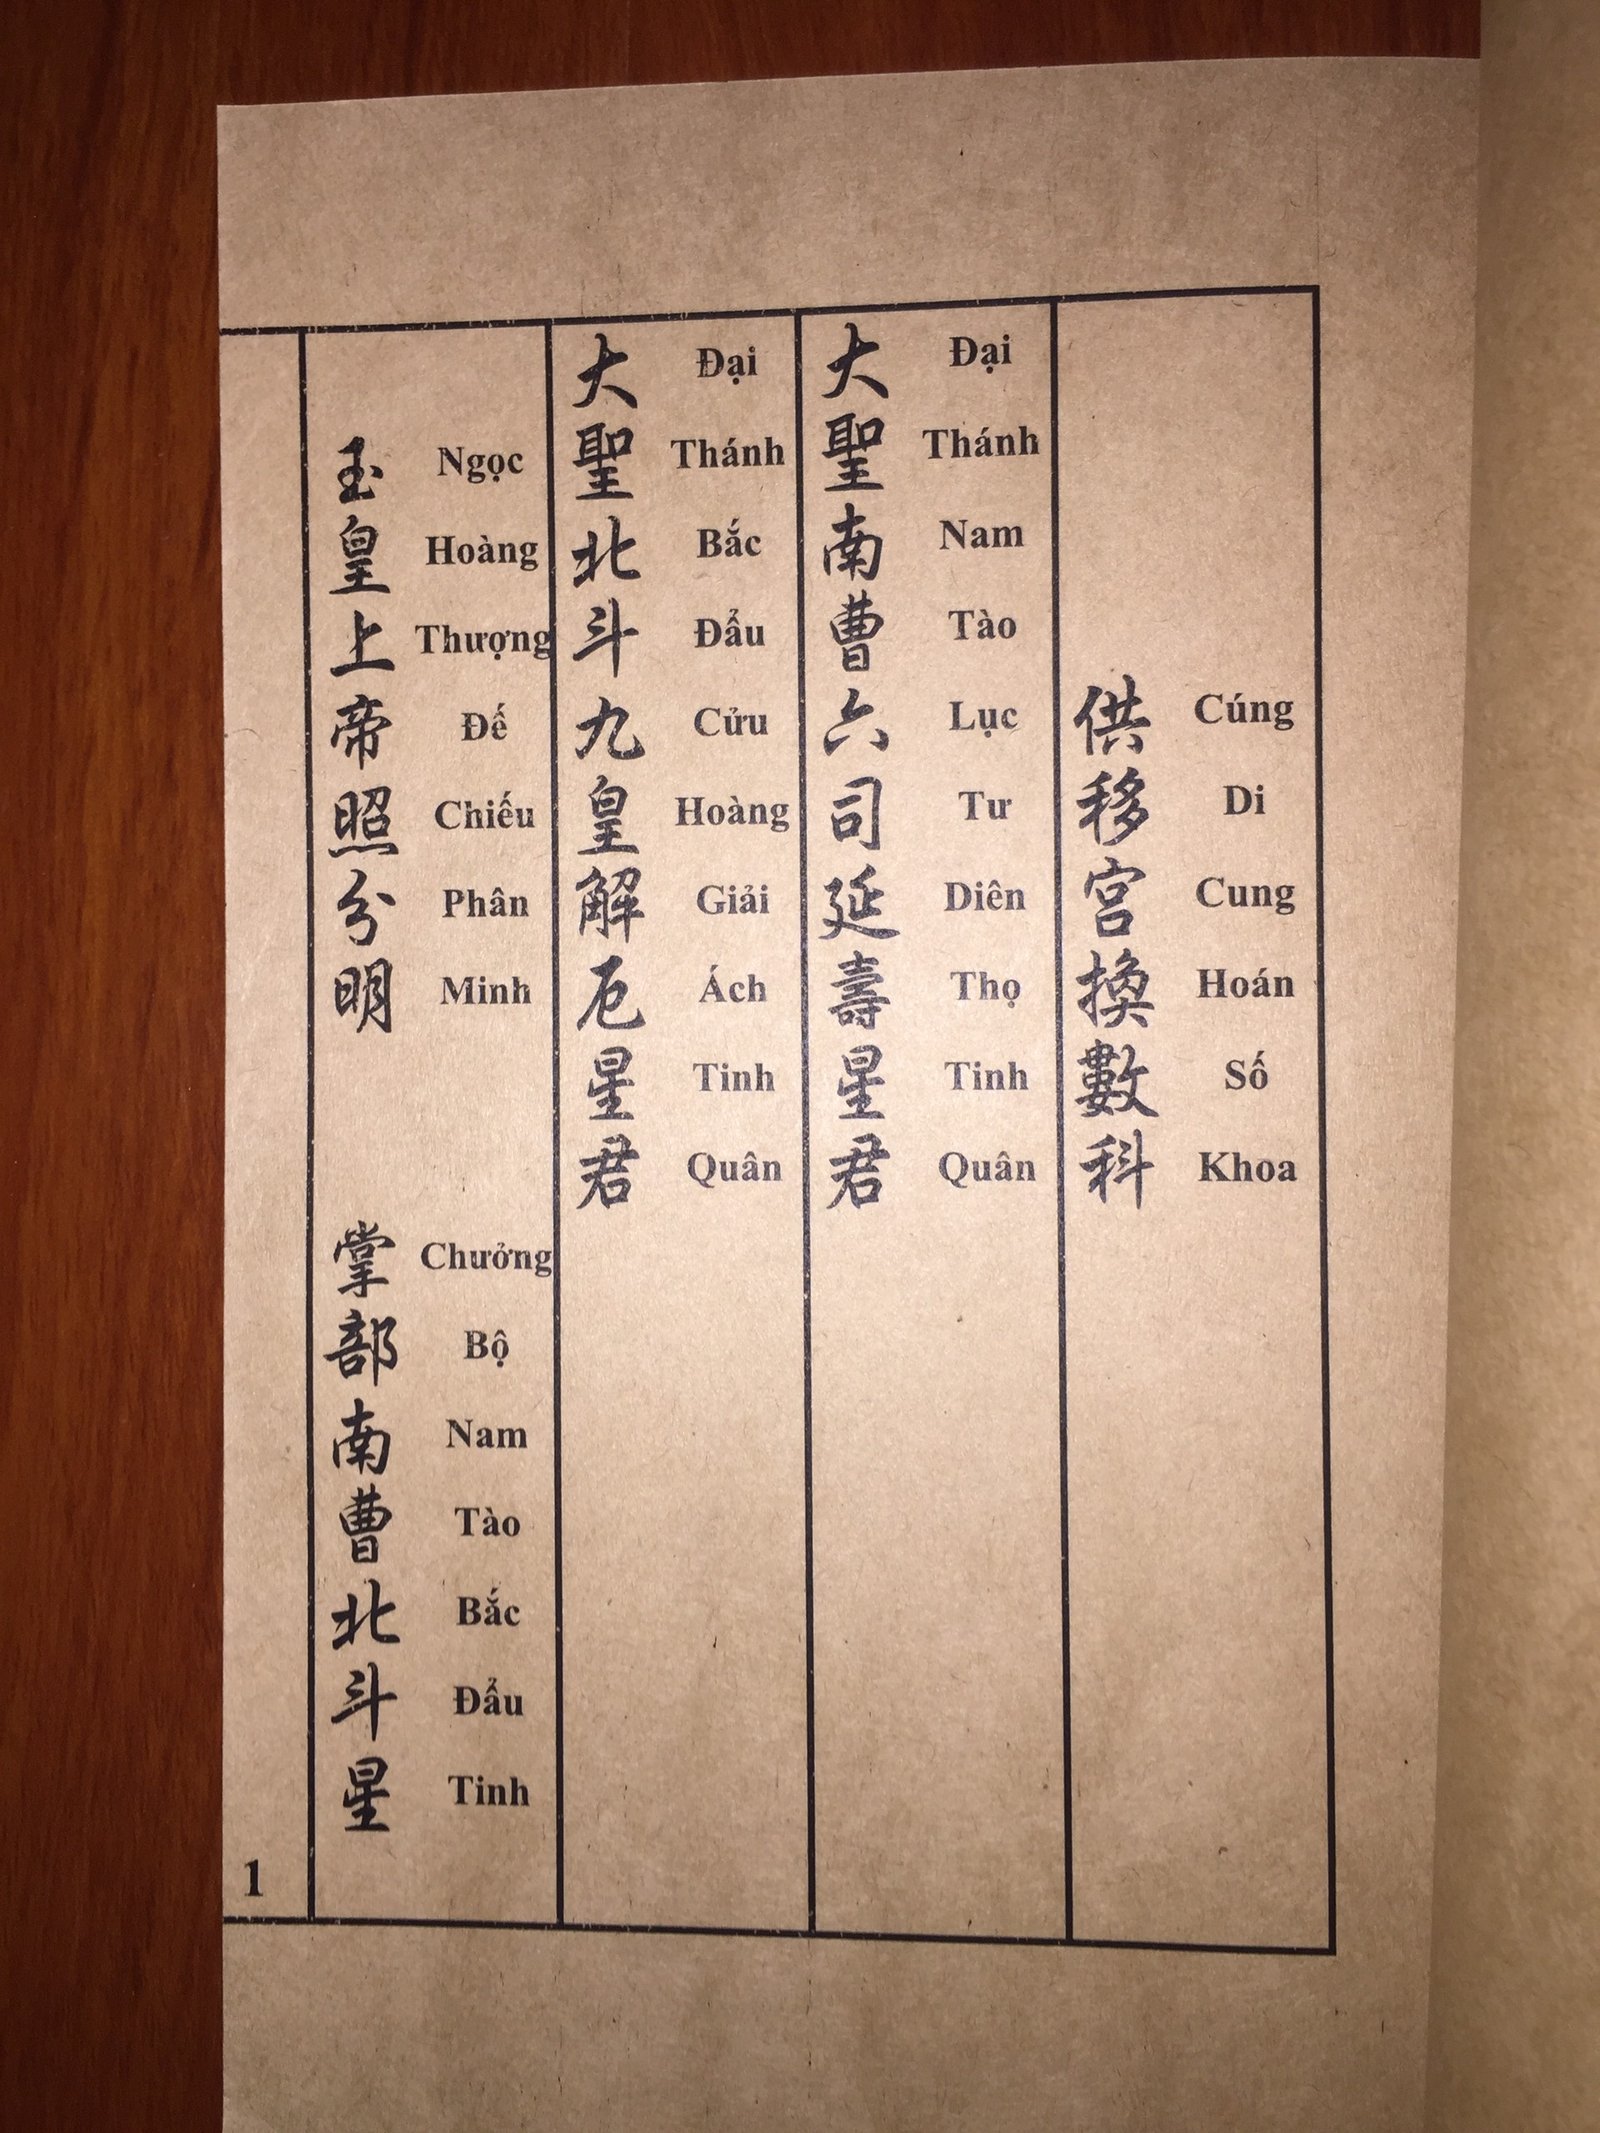 供移宮換數科
Cúng Di Cung Hoán Số Khoa
大聖南曹六司延壽星君
Đại Thánh Nam Tào Lục Tư Diên Thọ Tinh Quân
大聖北斗九皇解厄星君
Đại Thánh Bắc Đẩu Cửu Hoàng Giải Ách Tinh Quân
玉皇上帝照分明 掌部南曹北斗星
Ngọc Hoàng Thượng Đế Chiếu Phân Minh Chưởng Bộ Nam Tào Bắc Đẩu Tinh
1